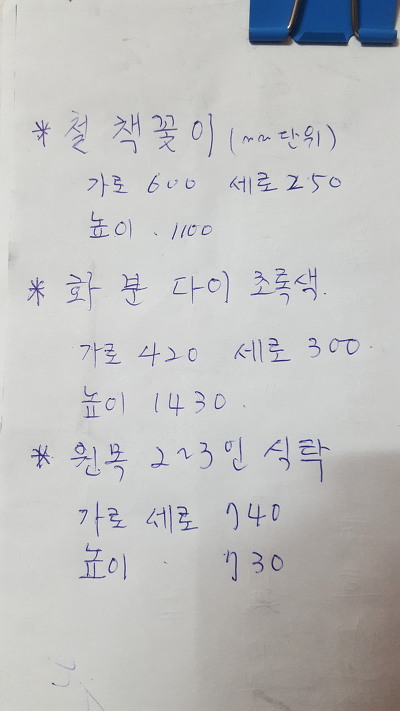 * 철 책꽂이 (mm단위)
가로 600 세로 250
높이 . 1100
* 화분 다이 초록색.
가로 420 세로 300.
높이 1430.
* 원목 2~3인 식탁
가로 세로 740
높이 . 730